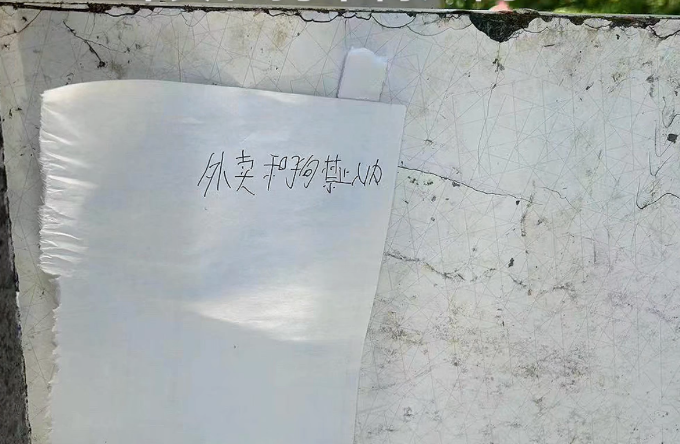 外卖和狗禁止入内